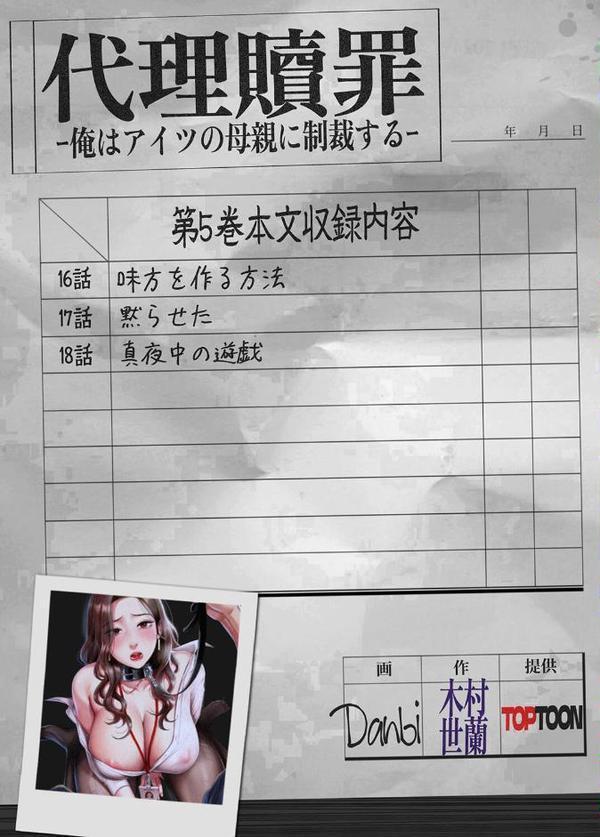 代理贖罪
-俺はアイツの母親に制裁する-
年 月 日
第5巻本文収録内容
16話 味方を作る方法
17話 黙らせた
18話 真夜中の遊戯
画 作 提供
Danbi 木村世蘭 TOPTOON